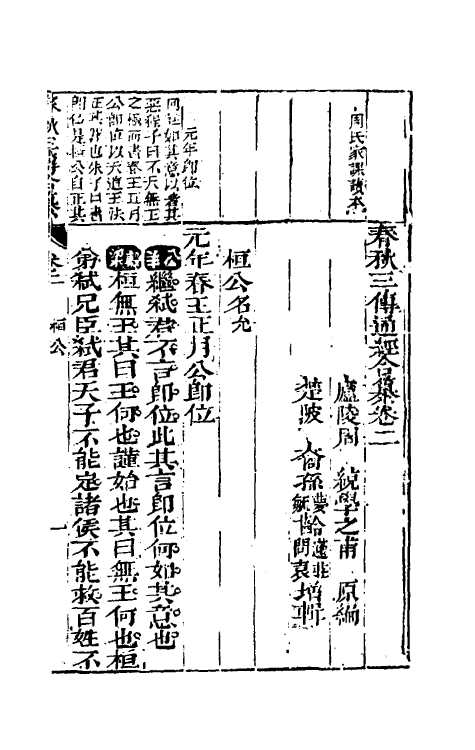 周氏家課讀本
春秋三傳通經合纂卷二
廬陵周 統學之甫 原編
楚陂 裔孫夢齡蓬非毓齡問哀增輯
桓公名允
元年春王正月公即位
元年即位
公羊繼弒君不言即位此其言即位何如其意也
穀梁桓無王其曰王何也謹始也其曰無王何也桓
弟弒兄臣弒君天子不能定諸侯不能救百姓不
同辶如其意以著其
惡程子曰不天無王
之極而書春王正月
公即位以天道王法
正其罪也朱子曰書
即位是桓公自正其
春秋三傳合纂
卷二
桓公
一